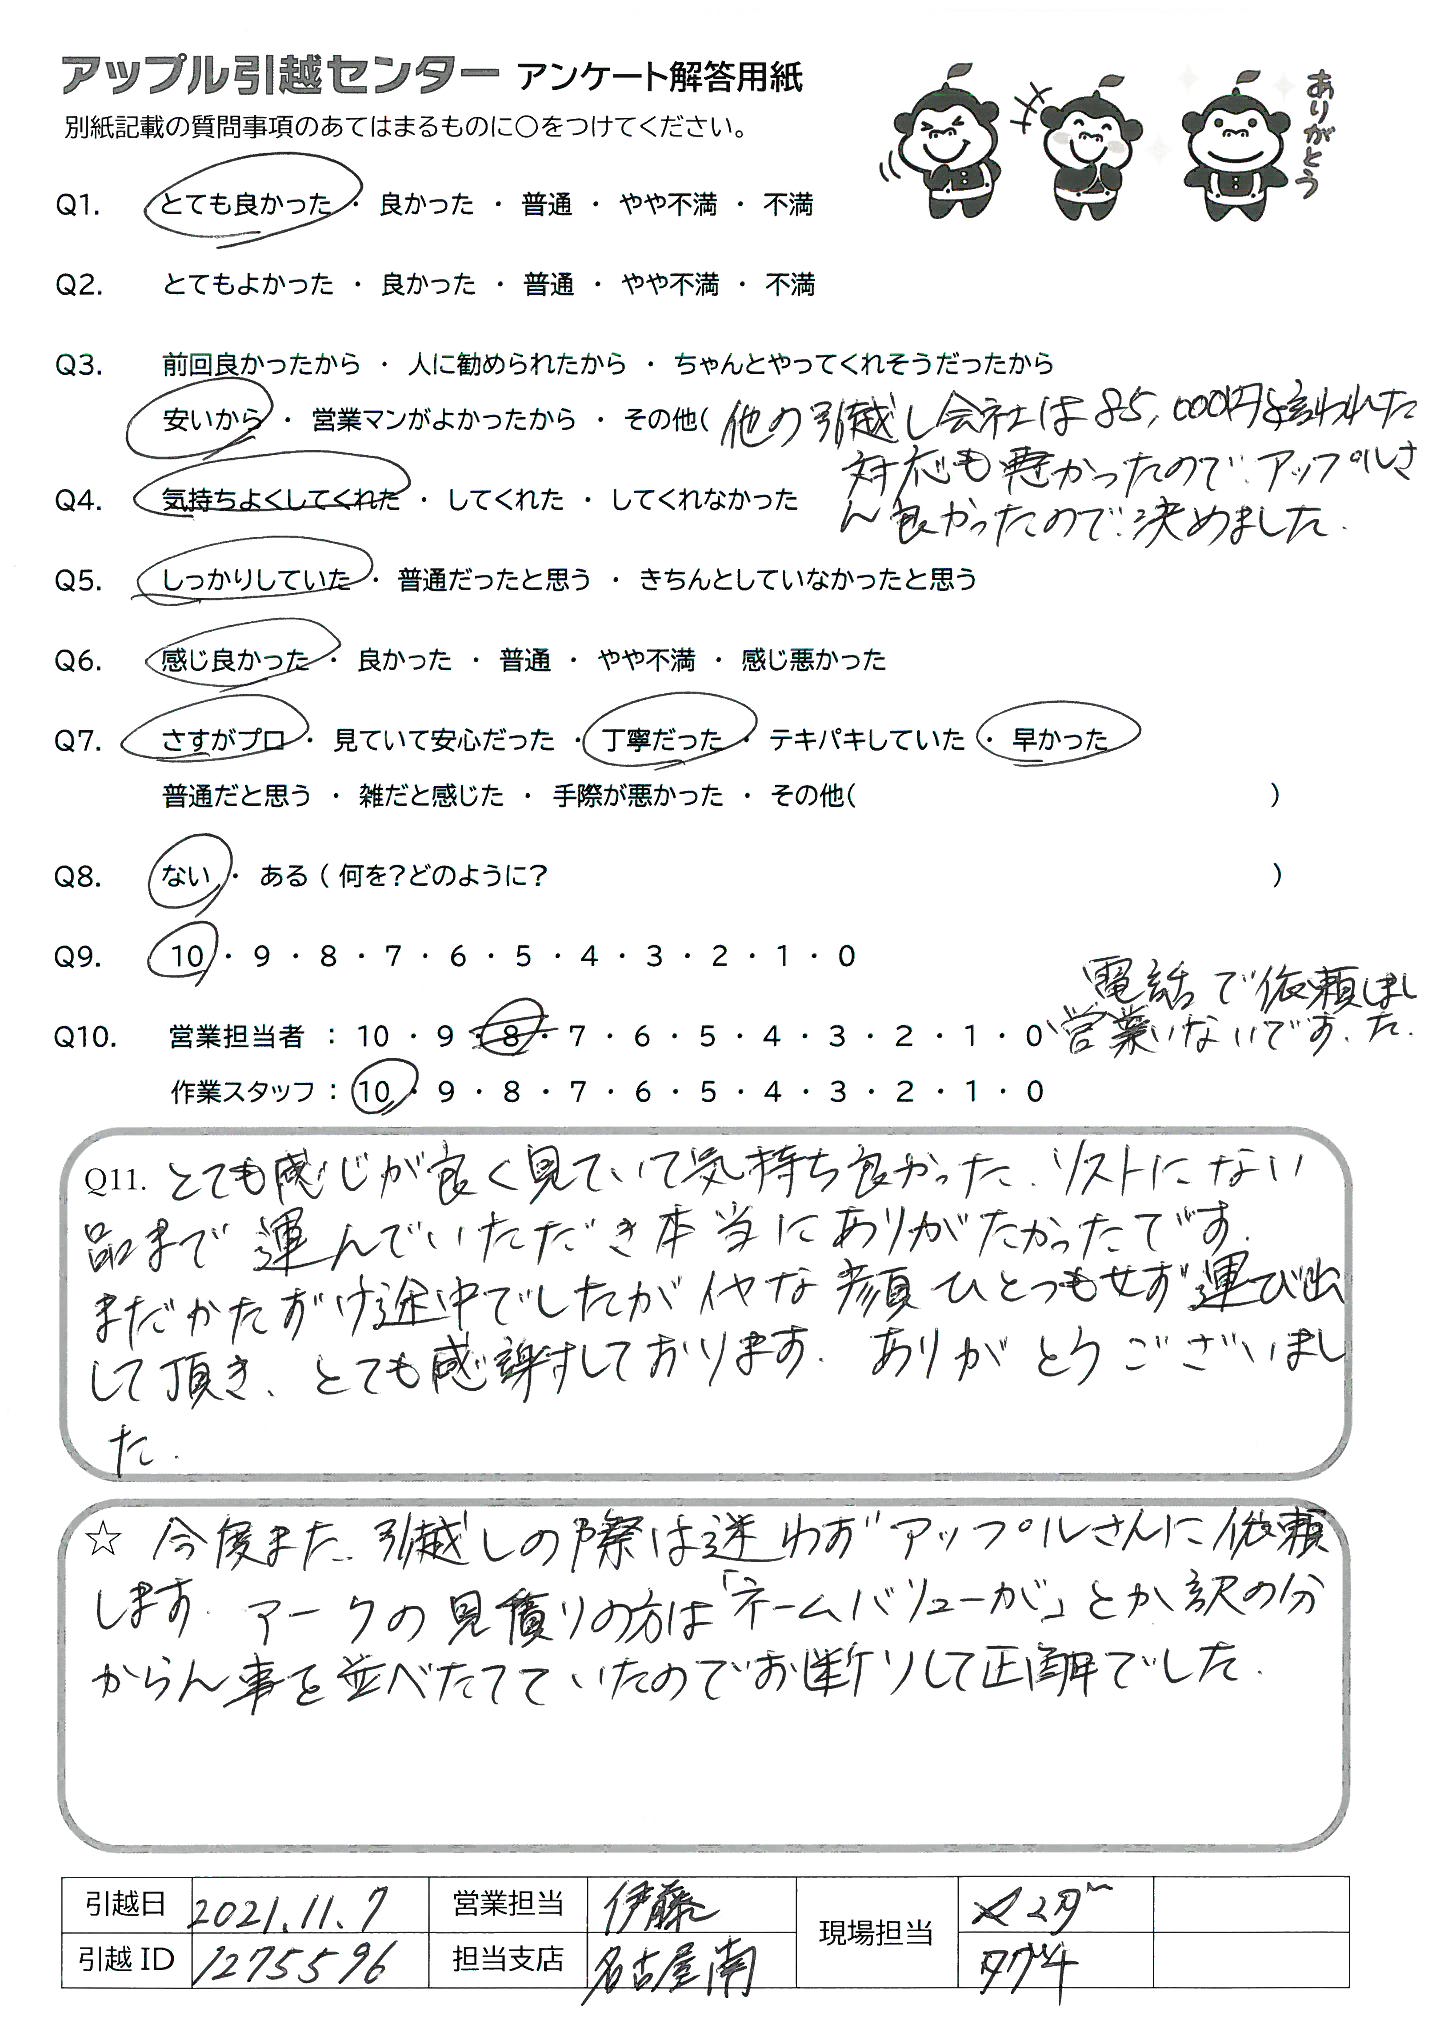 アップル引越センター アンケート解答用紙
別紙記載の質問事項のあてはまるものに○をつけてください。
ありがとう
Q1. とても良かった ・ 良かった ・ 普通 ・ やや不満 ・ 不満
Q2. とてもよかった ・ 良かった ・ 普通 ・ やや不満 ・ 不満
Q3. 前回良かったから ・ 人に勧められたから ・ ちゃんとやってくれそうだったから
安いから ・ 営業マンがよかったから ・ その他( 他の引越し会社は85,000円と言われた
対応も悪かったので、アップルさ
Q4. 気持ちよくしてくれた ・ してくれた ・ してくれなかった
ん良かったので決めました.
Q5. しっかりしていた ・ 普通だったと思う ・ きちんとしていなかったと思う
Q6. 感じ良かった ・ 良かった ・ 普通 ・ やや不満 ・ 感じ悪かった
Q7. さすがプロ ・ 見ていて安心だった ・ 丁寧だった ・ テキパキしていた ・ 早かった
普通だと思う ・ 雑だと感じた ・ 手際が悪かった ・ その他( )
Q8. ない ・ ある ( 何を?どのように? )
Q9. 10 ・ 9 ・ 8 ・ 7 ・ 6 ・ 5 ・ 4 ・ 3 ・ 2 ・ 1 ・ 0
電話で依頼しまし
Q10. 営業担当者 : 10 ・ 9 ・ 8 ・ 7 ・ 6 ・ 5 ・ 4 ・ 3 ・ 2 ・ 1 ・ 0 営業いないです. た.
作業スタッフ : 10 ・ 9 ・ 8 ・ 7 ・ 6 ・ 5 ・ 4 ・ 3 ・ 2 ・ 1 ・ 0
Q11. とても感じが良く見ていて気持ち良かった. リストにない
品まで運んでいただき本当にありがたかったです.
まだかたずけ途中でしたがイヤな顔ひとつもせず運び出
して頂き、とても感謝しております. ありがとうございまし
た.
☆ 今度また、引越しの際は迷わずアップルさんに依頼
します. アークの見積りの方は「ネームバリューが」とか訳の分
からん事を並べたてていたのでお断りして正解でした.
引越日 2021.11.7 営業担当 伊藤 現場担当
引越ID 1275596 担当支店 名古屋南